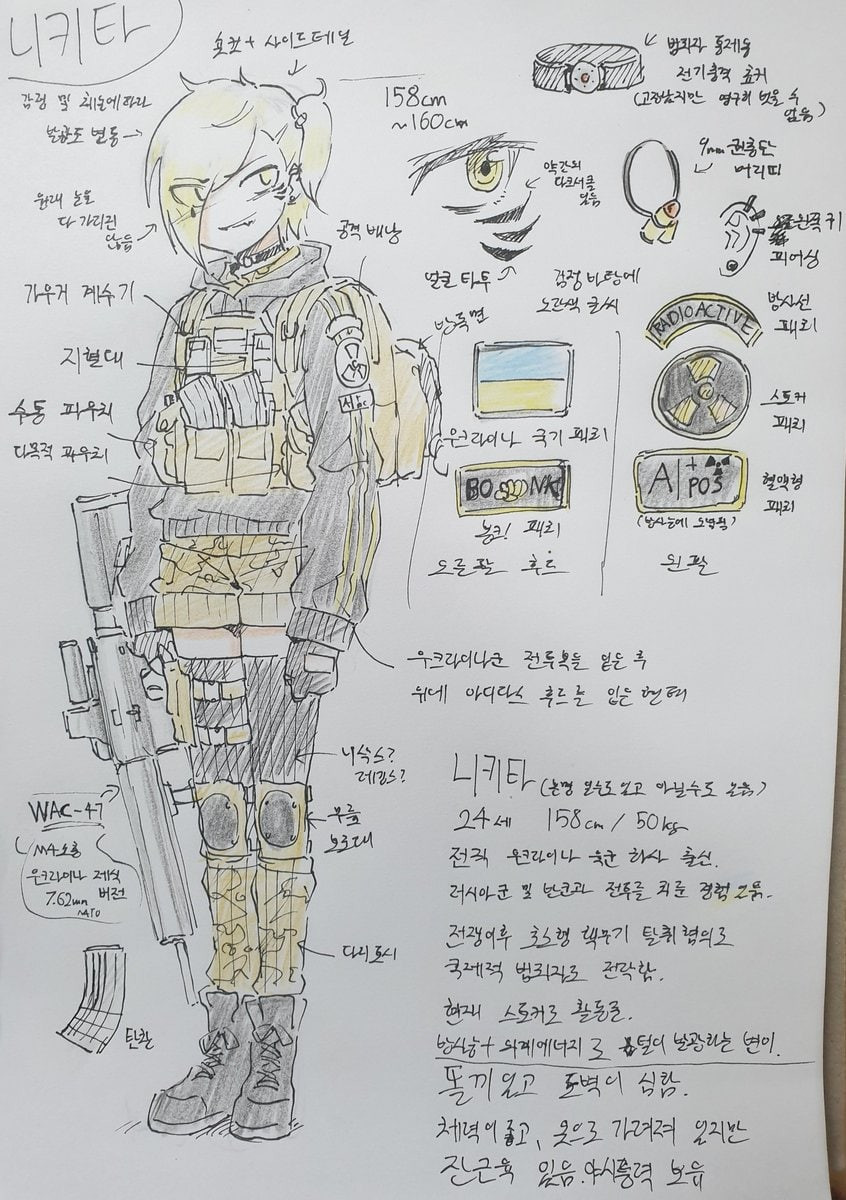 니키타
숏컷 + 사이드테일
감정 및 체온에 따라
발광도 변동
원래 눈을
다 가리진
않음
158cm
~160cm
범죄자 통제용
전기충격 초커
(고장났지만 영구히 벗을 수
없음)
약간의
다크서클
있음
9mm 권총탄
머리띠
왼쪽 귀
피어싱
얼굴 타투
공격 배낭
가우거 계수기
지혈대
수통 파우치
다목적 파우치
방독면
검정 바탕에
노란색 글씨
우크라이나 국기 패치
BO NK
봉크! 패치
오른팔 후드
RADIOACTIVE
방사선
패치
스토커
패치
A + POS
혈액형
패치
(방사능에 오염됨)
왼팔
우크라이나군 전투복을 입은 후
위에 아디다스 후드를 입은 형태
니삭스?
레깅스?
무릎
보호대
WAC-47
M4소총
우크라이나 제식
버전
7.62mm
NATO
탄창
니키타 (본명 일수도 있고 아닐수도 있음)
24세 158cm / 50kg
전직 우크라이나 육군 하사 출신.
러시아군 및 반군과 전투를 치룬 경험 있음.
전쟁이후 초소형 핵무기 탈취 혐의로
국제적 범죄자로 전락함.
현재 스토커로 활동중.
방사능 + 외계에너지로 털이 발광하는 변이.
똘끼 있고 도벽이 심함.
체력이 좋고, 옷으로 가려져 있지만
잔근육 있음. 야시능력 보유